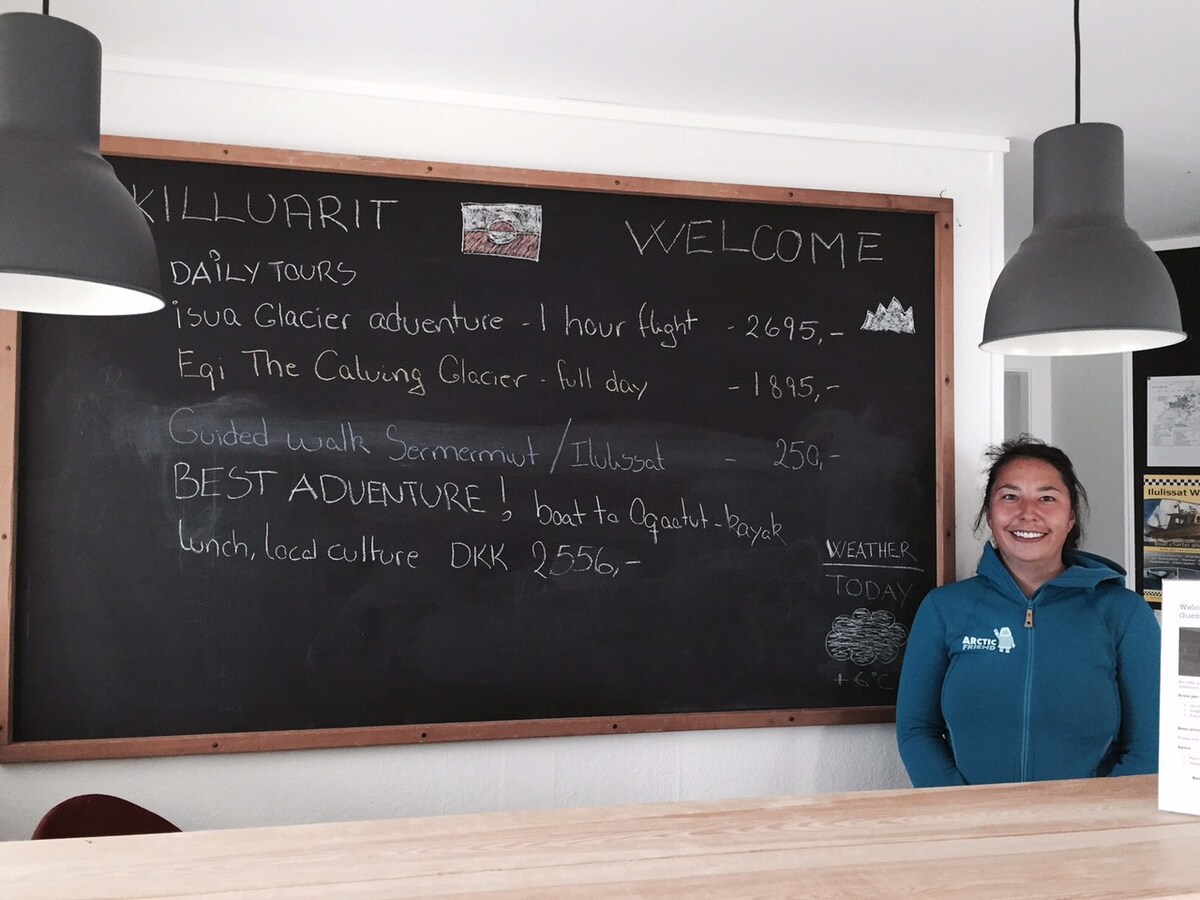 KILLUARIT
WELCOME
DAILY TOURS
isua Glacier adventure - 1 hour flight - 2695,-
Eqi The Calving Glacier - full day - 1895,-
Guided walk Sermermiut / Ilulissat - 250,-
BEST ADVENTURE! boat to Oqaatut - kayak
lunch, local culture DKK 2556,-
WEATHER
TODAY
+6°C
ARCTIC
FRIEND
Ilulissat W